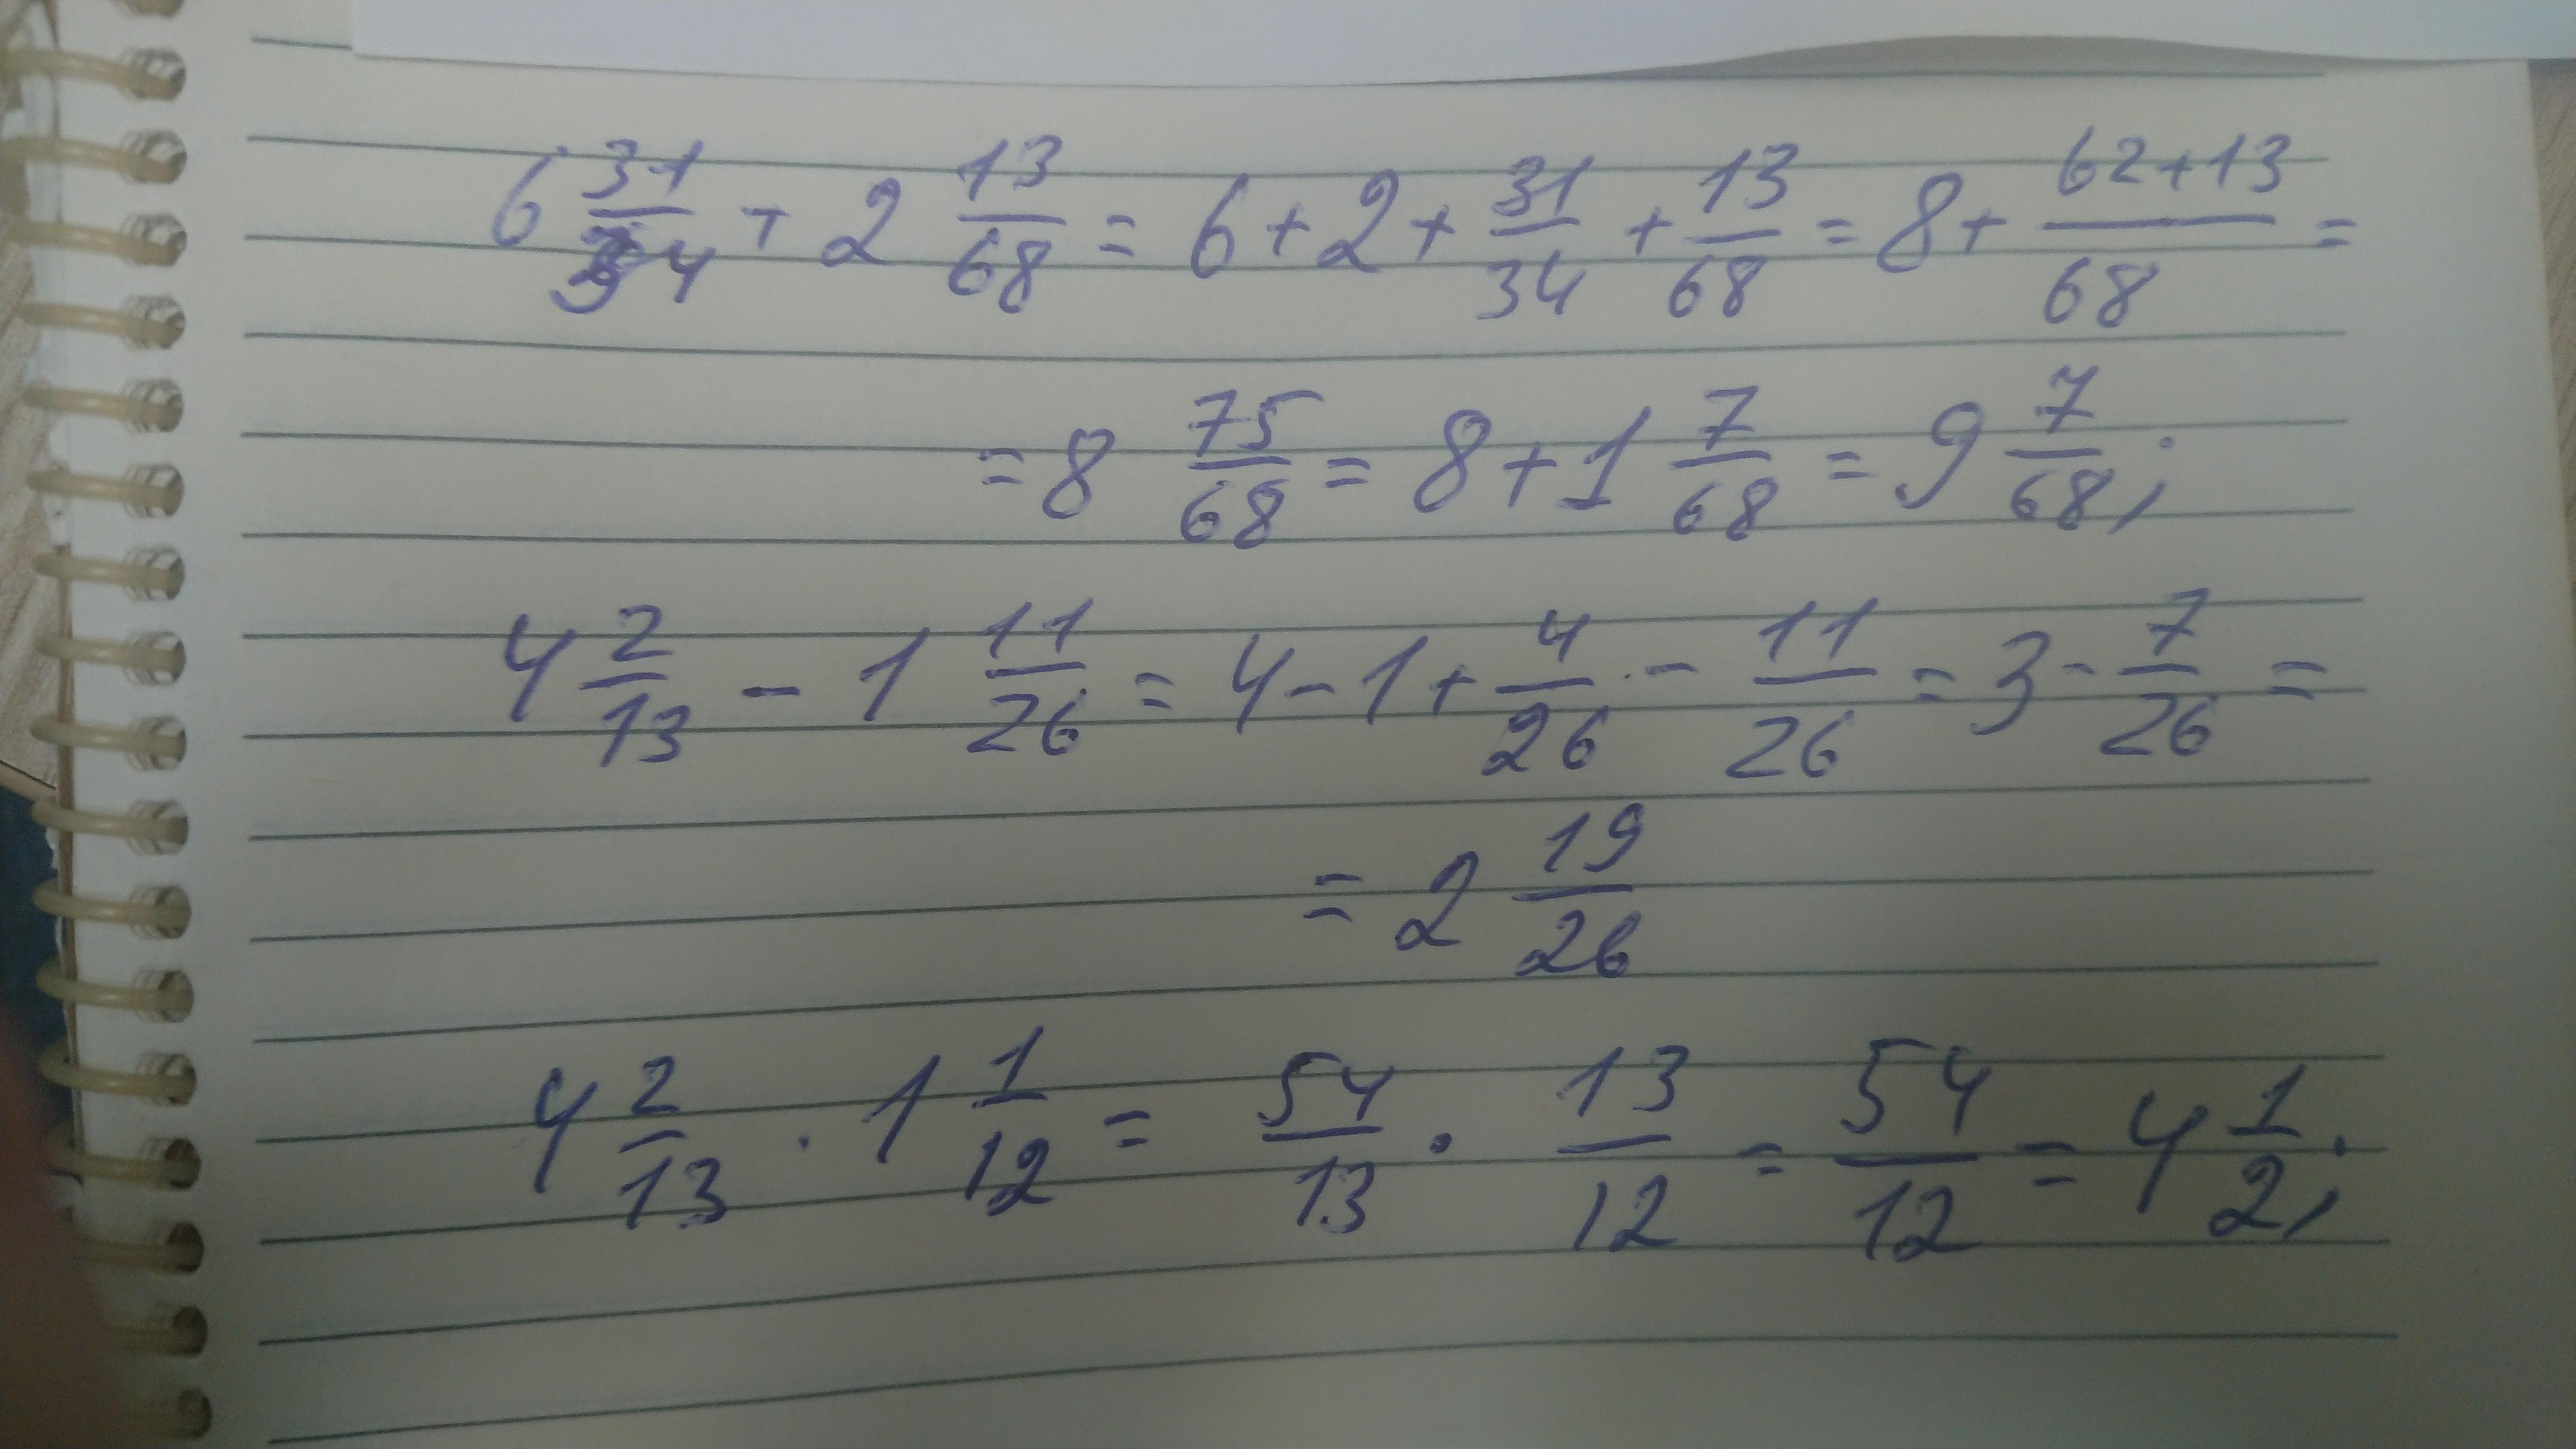 6 31/34 + 2 13/68 = 6 + 2 + 31/34 + 13/68 = 8 + (62+13)/68 =
= 8 75/68 = 8 + 1 7/68 = 9 7/68;
4 2/13 - 1 11/26 = 4 - 1 + 4/26 - 11/26 = 3 - 7/26 =
= 2 19/26
4 2/13 · 1 1/12 = 54/13 · 13/12 = 54/12 = 4 1/2;